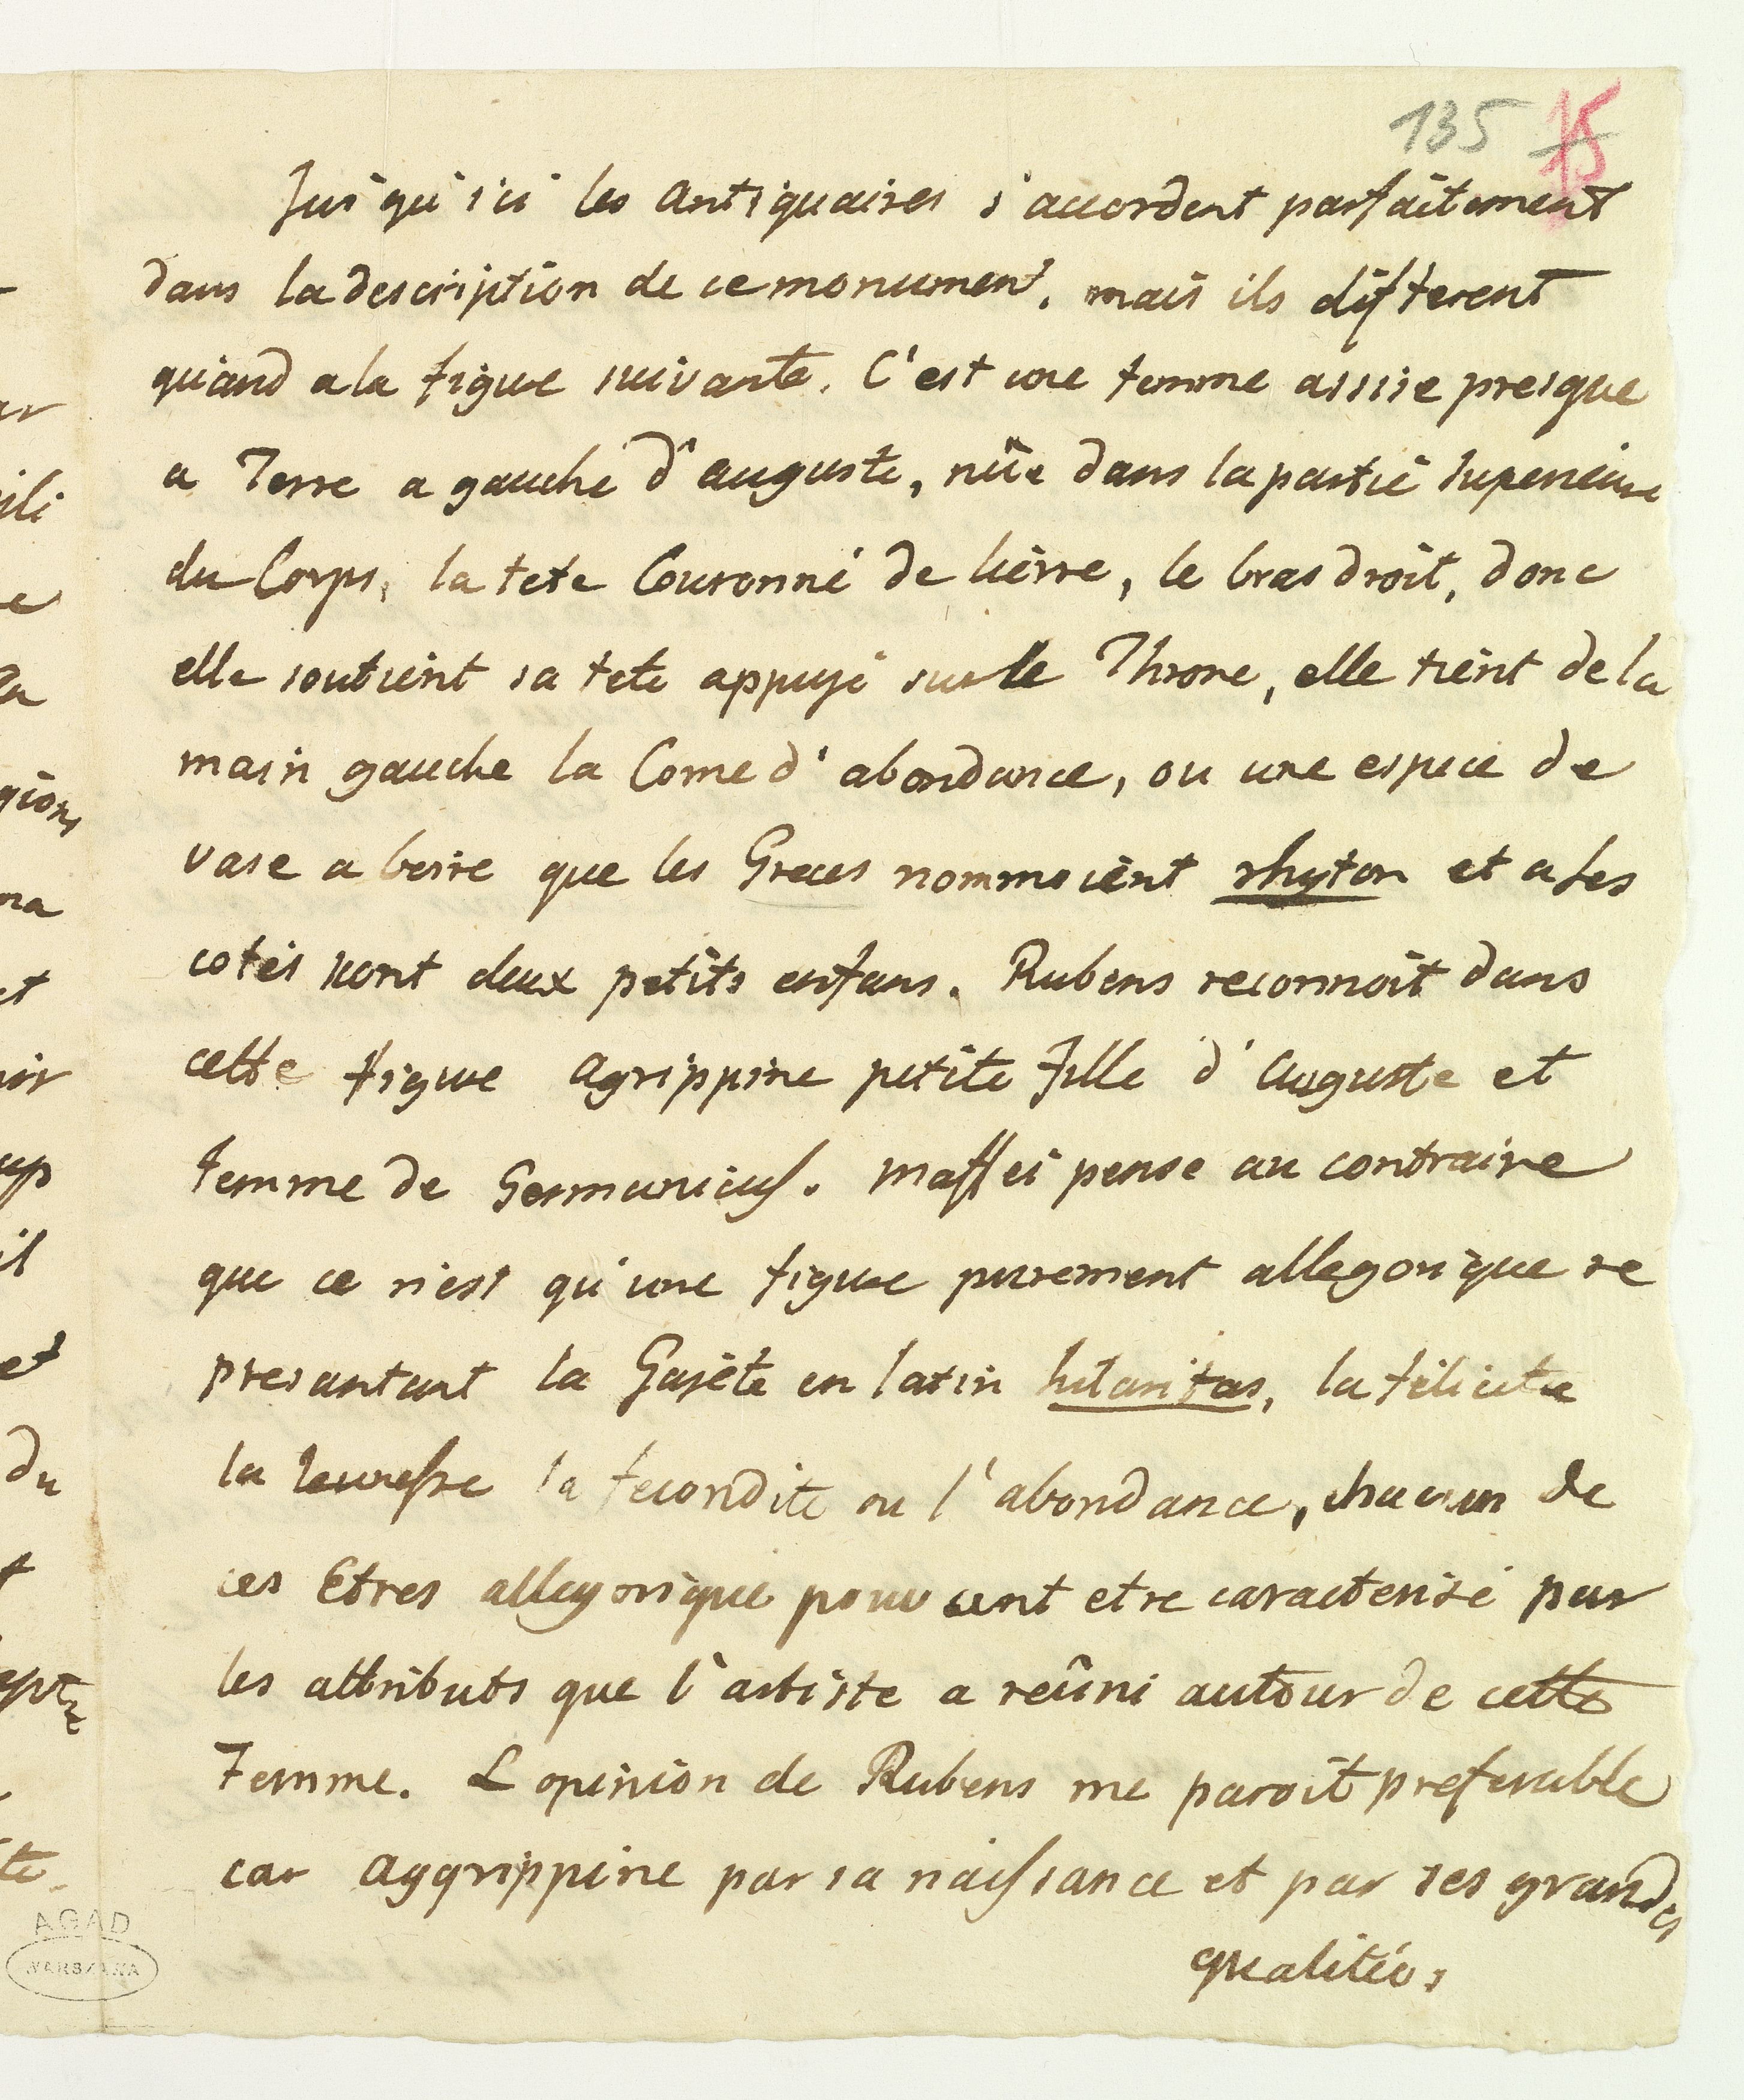 135 15
Jusqu'ici les antiquaires s'accordent parfaitement
dans la description de ce monument. mais ils different
quand a la figure suivante. C'est une femme assise presque
a Terre a gauche d'auguste, nûe dans la partie superieure
du Corps, la tete Couronné de lierre, le bras droit, donc
elle soutient sa tete appuyé sur le Throne, elle tient de la
main gauche la Corne d'abondance, ou une espece de
vase a boire que les Greces nommoient rhyton et a ses
cotés sont deux petits enfans. Rubens reconnoit dans
cette figure agrippine petite fille d'auguste et
femme de Germanicus. maffei pense au contraire
que ce n'est qu'une figure purement allegorique re
presantant la Gajété en latin hilaritas, la félicité
la fecondité ou l'abondance, chacun de
ces Etres allegorique pouvoient etre caracterisé par
les attributs que l'artiste a reûni autour de cette
Femme. L opinion de Rubens me paroit preferable
car aggrippine par sa naissance et par ses grandes
qualités,
ar
ili
e
la
gions
na
et
oir
up
il
et
du
t
epte
te.
AGAD
WARSZAWA